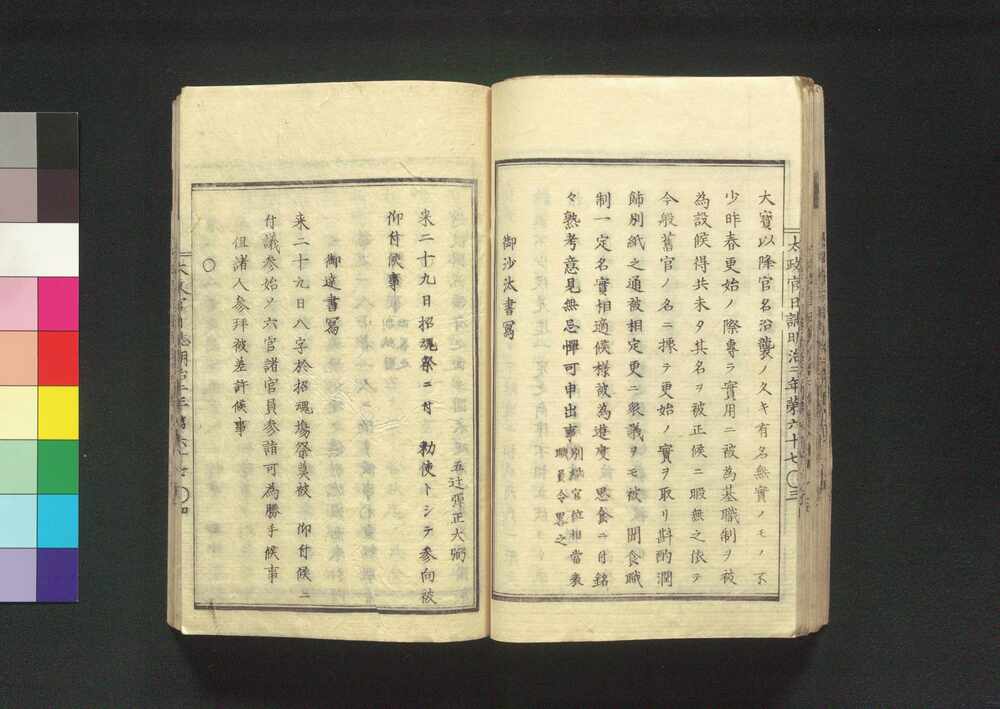 太政官日誌明治二年第六十七 〇三
大寶以降官名沿襲ノ久キ有名無實ノモノ不
少昨春更始ノ際專ラ實用ニ被為基職制ヲ被
為設候得共未タ其名ヲ被正候ニ暇無之依テ
今般舊官ノ名ニ據テ更始ノ實ヲ取リ斟酌潤
飾別紙之通被相定更ニ衆議ヲモ被 聞食職
制一定名實相適候様被為遊度 思食ニ付銘
々熟考意見無忌憚可申出事 別紙官位相當表
職員令畧之
御沙汰書寫
五辻彈正大弼
来二十九日招魂祭ニ付 勅使トシテ参向被
仰付候事
御達書寫
来二十九日八字於招魂塲祭奠被 仰付候ニ
付議参始メ六官諸官員参詣可為勝手候事
但諸人参拜被差許候事
〇
太政官日誌明治二年第六十七 〇四